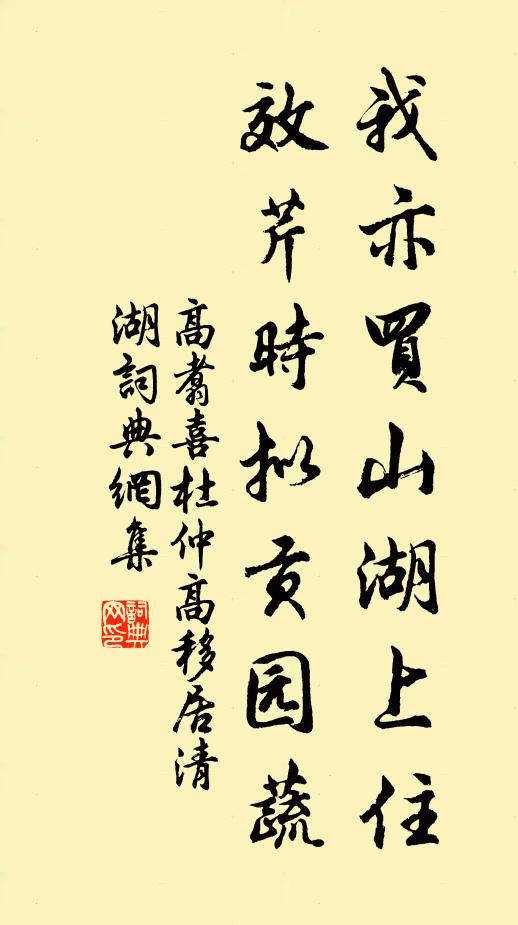 我亦買山湖上住
效芹時拟贡园蔬
高翥喜杜仲高移居清
湖詞典網集
詞典
网印